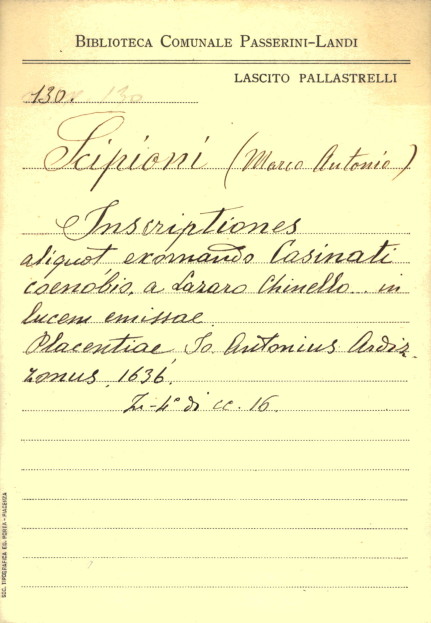 BIBLIOTECA COMUNALE PASSERINI-LANDI
LASCITO PALLASTRELLI
130. 130
Scipioni (Marco Antonio)
Inscriptiones
aliquot exornando Casinati
coenobio, a Lazaro Chinello... in
lucem emissae.
Placentiae, Jo. Antonius Ardiz-
zonus, 1636.
In-4° di cc. 16.
SOC. TIPOGRAFICA ED. PORTA - PIACENZA